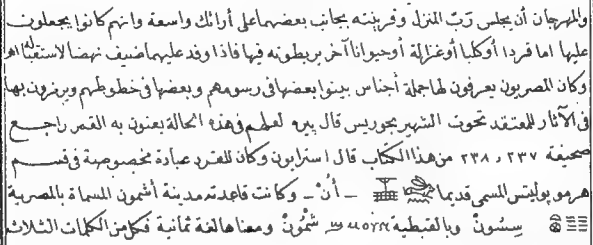 والمهرجان أن يجلس رَبّ المنزل وقرينته بجانب بعضهما على أرائك واسعة وانهم كانوا يجعلون
عليها اما قردا أو كلبا أو غزالة أو حيوانا آخر يربطونه فيها فاذا وفد عليهما ضيف نهضا لاستقباله اه
وكان المصريون يعرفون لها جملة أجناس بينوا بعضها فى رسومهم وبعضها فى خطوطهم ويرمزون بها
فى الآثار للمعتقد تحوت الشهير بجوريس قال پيره لعلهم فى هذه الحالة يعنون به القمر راجع
صحيفة ٢٣٧ و ٢٣٨ من هذا الكتاب قال استرابون وكان للقرد عبادة مخصوصة فى قسم
هرموبوليتس المسمى قديما أُنْ وكانت قاعدته مدينة أشمون المسماة بالمصرية
سِسُونْ وبالقبطية شْمُونْ ومعناها لغة ثمانية فكل من الكلمات الثلاث